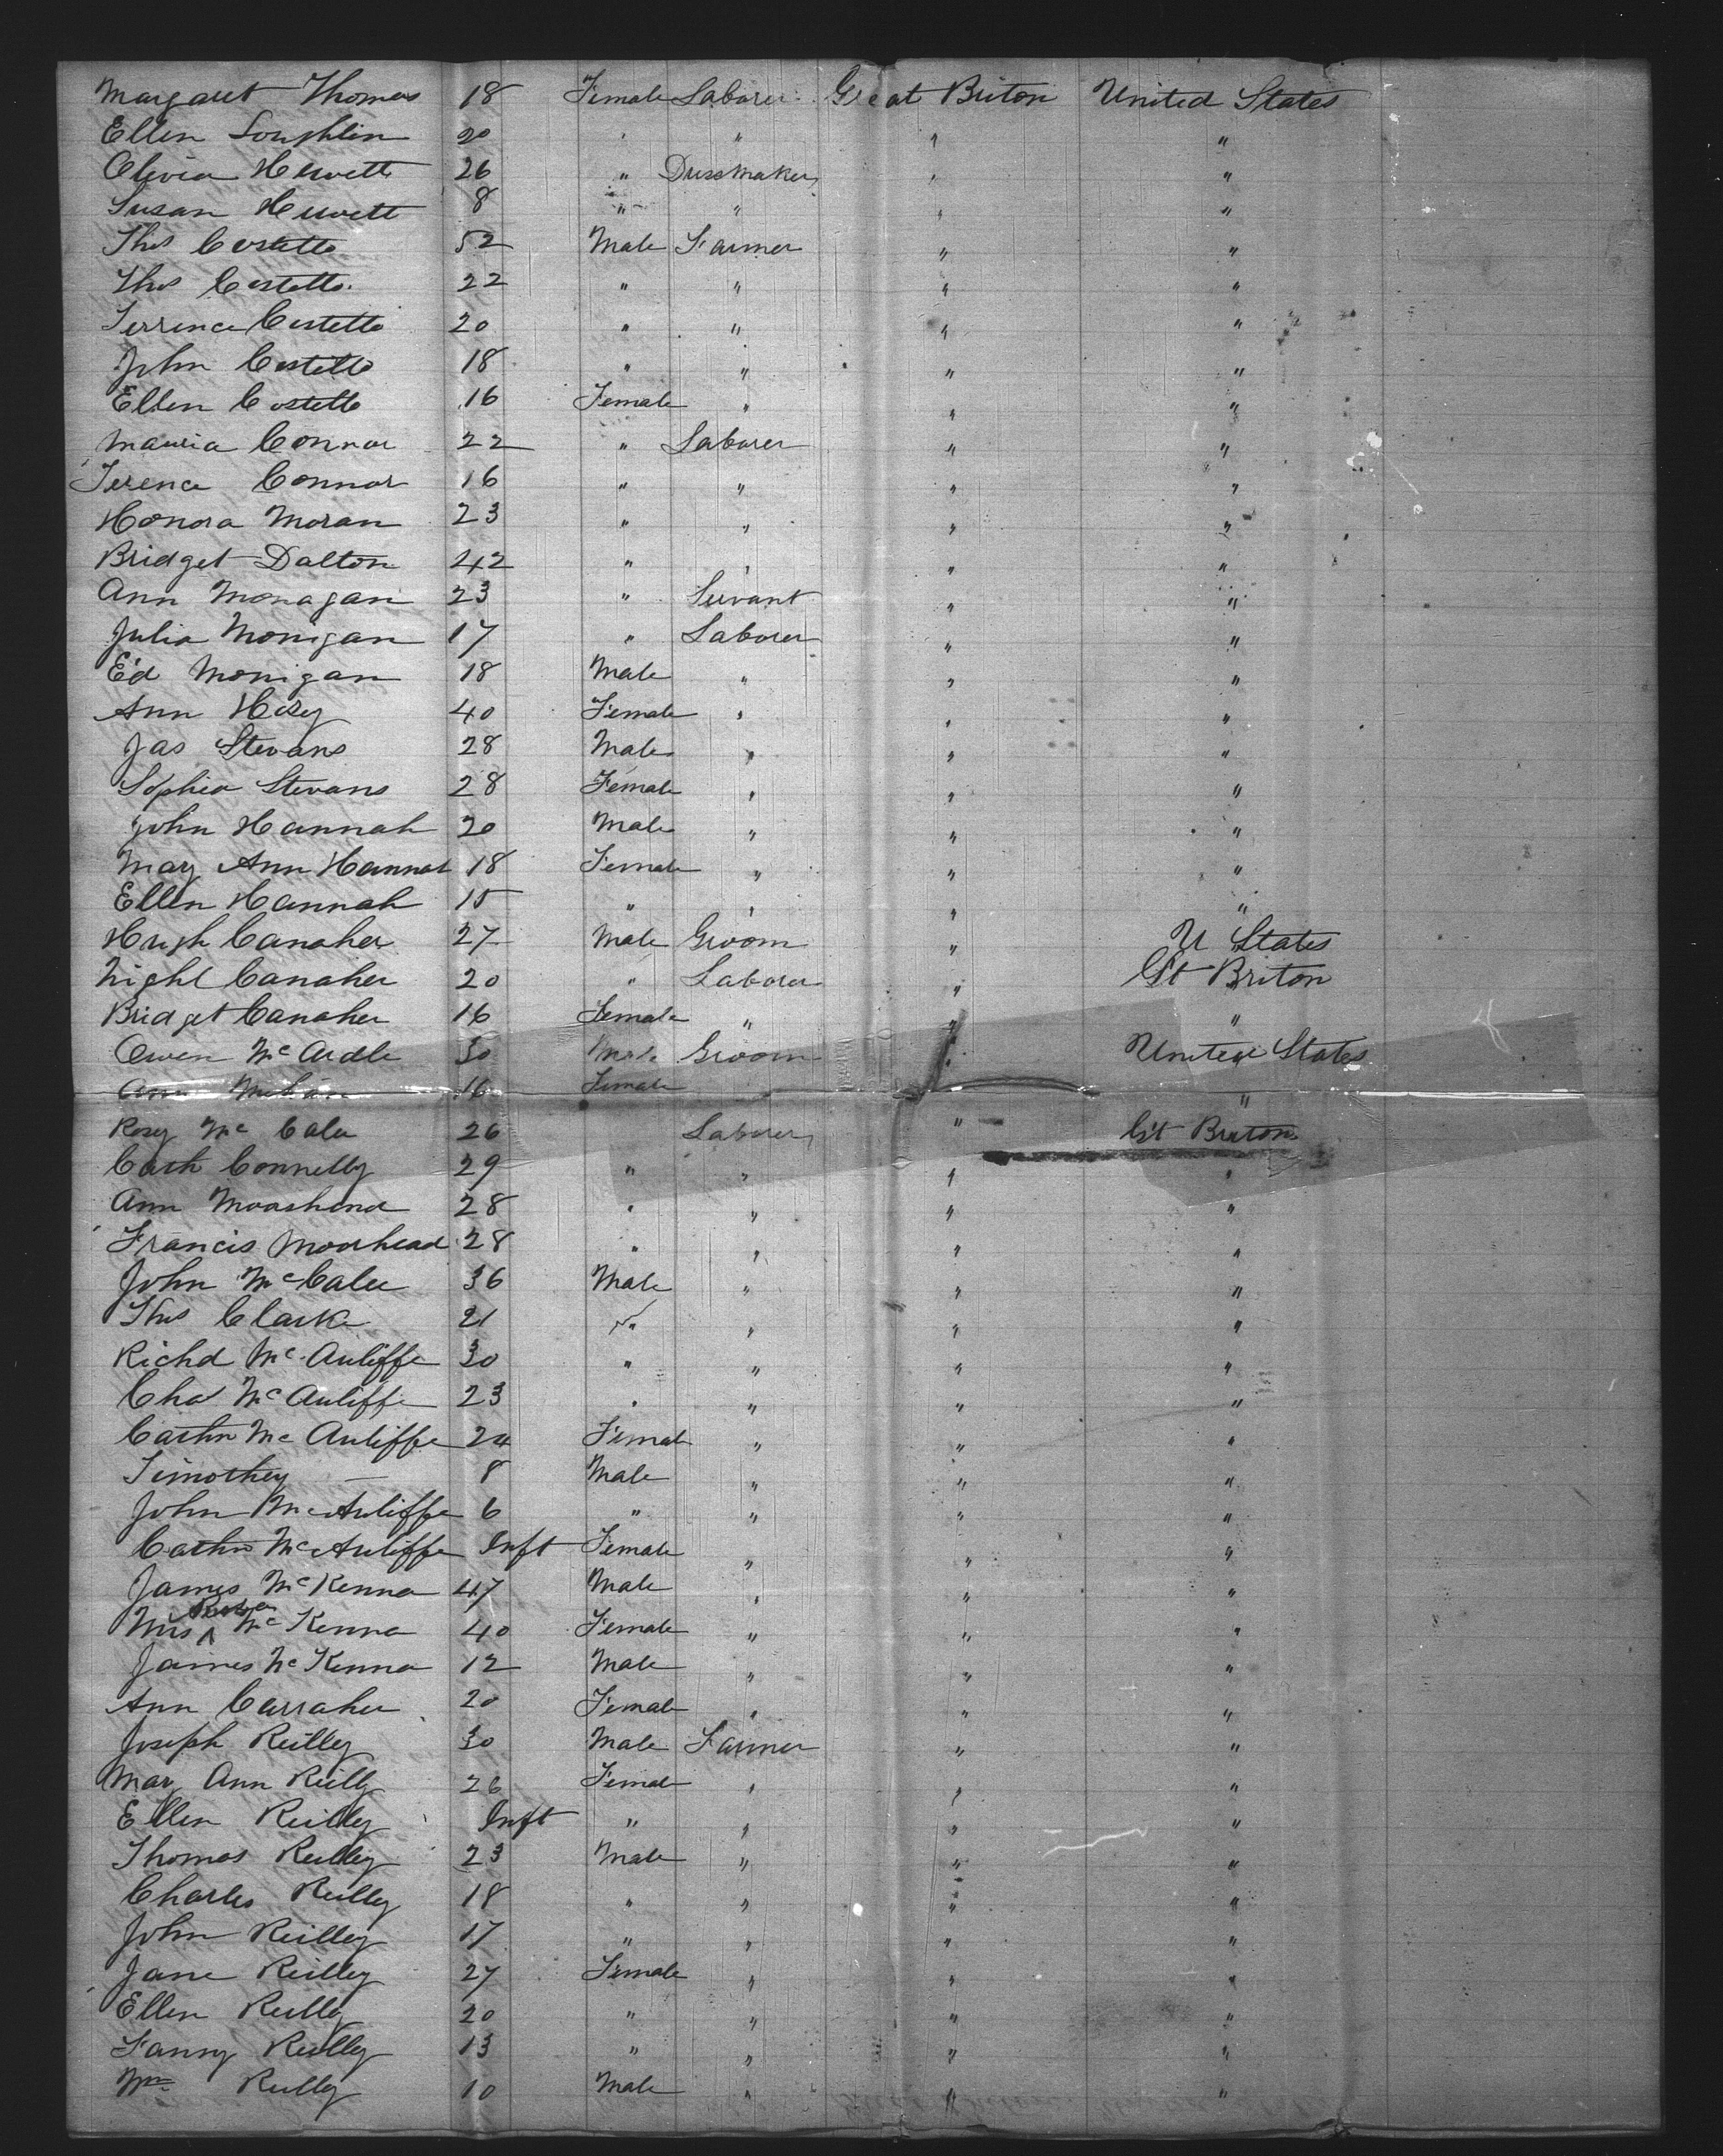 Margaret Thomas 18 Female Laborer Great Briton United States
Ellen Loughlin 20 " " " "
Olivia Hewett 26 " Dressmaker " "
Susan Hewett 8 " " " "
Thos Costello 52 Male Farmer " "
Thos Costello 22 " " " "
Terrence Costello 20 " " " "
John Costello 18 " " " "
Ellen Costello 16 Female " " "
Mauria Connor 22 " Laborer " "
Terence Connor 16 " " " "
Honora Moran 23 " " " "
Bridget Dalton 42 " " " "
Ann Monagan 23 " Servant " "
Julia Monigan 17 " Laborer " "
Ed Monigan 18 Male " " "
Ann 40 Female " " "
Jas Stevans 28 Male " " "
Sophia Stevans 28 Female " " "
John Hannah 20 Male " " "
Mary Ann Hannah 18 Female " " "
Ellen Hannah 15 " " " "
Hugh Canaher 27 Male Groom " U States
Canaher 20 " Laborer " Gt Briton
Bridget Canaher 16 Female " " "
Owen McArdle 30 Male Groom " United States
Ann 16 Female "
Rosy McCalee 26 Laborer " Gt Briton
Cath Connelly 29 " " " "
Ann 28 " " " "
Francis Moorhead 28 " " " "
John McCalee 36 Male " " "
Thos Clarke 21 " " " "
Richd McAuliffe 30 " " " "
Chas McAuliffe 23 " " " "
Cathn McAuliffe 24 Female " " "
Timothey — 8 Male " " "
John McAuliffe 6 " " " "
Cathn McAuliffe Inft Female " " "
James McKenna 47 Male " " "
Mrs McKenna 40 Female " " "
James McKenna 12 Male " " "
Ann Carraher 20 Female " " "
Joseph Reilley 30 Male Farmer " "
Mary Ann Reilly 26 Female " " "
Ellen Reilley Inft " " " "
Thomas Reilley 23 Male " " "
Charles Reilley 18 " " " "
John Reilley 17 " " " "
Jane Reilley 27 Female " " "
Ellen Reilly 20 " " " "
Fanny Reilley 13 " " " "
Wm Reilly 10 Male " " "